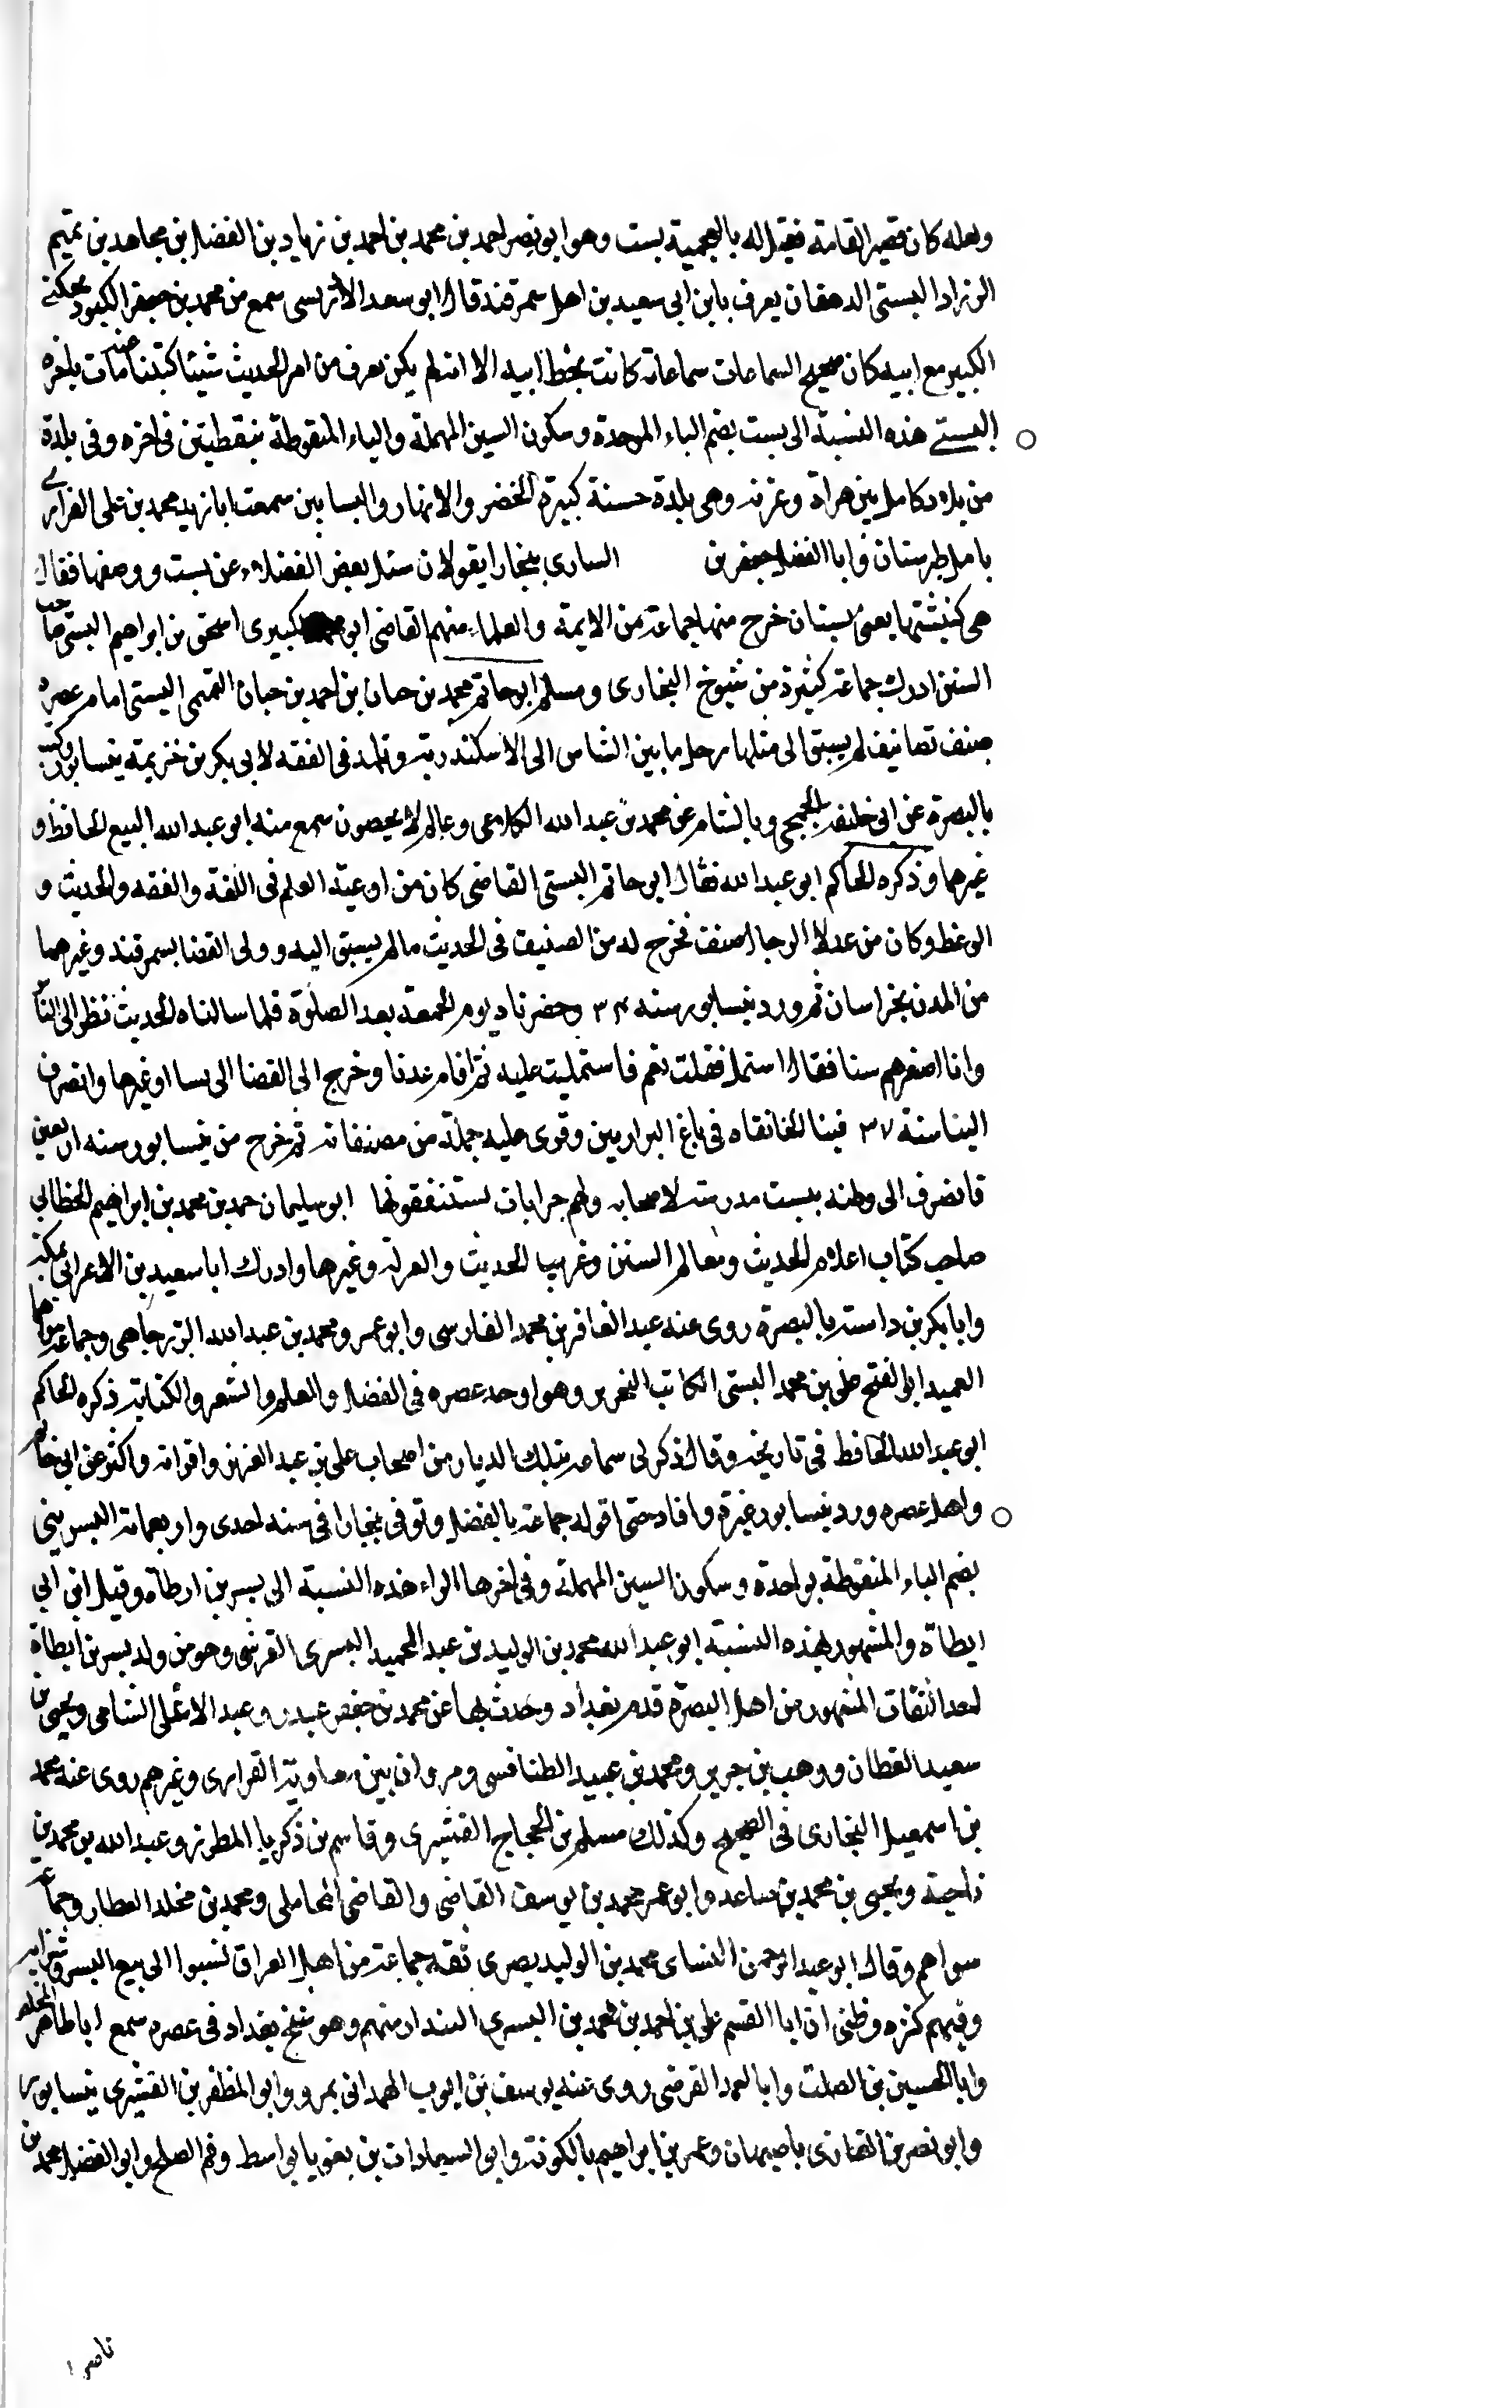 ولعله كان قصير القامة فقيل له بالعجمية بست وهو ابو نصر احمد بن محمد بن احمد بن زياد بن الفضل بن مجاهد بن تميم
الزراد البستى الدهقان يعرف بابن ابى سعيد بن اهل سمرقند قال ابو سعد الادريسى سمع من محمد بن جعفر الكبود
الكبير مع ابيه كان صحيح السماعات سماعاته كانت بخط ابيه الا انه لم يكن يعرف من امر الحديث شيئا كتبنا عنه مات باخره
البستى هذه النسبة الى بست بضم الباء الموحدة وسكون السين المهملة والياء المنقوطة بنقطيتن فى اخره وفى بلدة
من بلاد كامل بين هراة وغزنه وهى بلدة حسنة كبيرة الخضر والانهار والبساتين سمعت ابا زيد محمد بن على
بامل طبرستان وابا الفضل جعفر بن السارى ببخارا يقولان سئل بعض الفضلاء عن بست ووصفها فقال
هى كتثنيتها يعنى بستان خرج منها جماعة من الايمة والعلماء منهم القاضى ابو محمد اسحق بن ابراهيم البستى صاحب
السنن ادرك جماعة كثيرة من شيوخ البخارى ومسلم ابو حاتم محمد بن حبان بن احمد بن حبان التميمى البستى امام عصره
صنف تصانيف لم يسبق الى مثلها رحل ما بين الشاس الى الاسكندرية وتلمذ فى الفقه لابى بكر بن خزيمة بنيسابور وكتب
بالبصرة عن ابى خليفة الجمحى وبالشام عن محمد بن عبد الله الكلاعى وعالم لا يحصون سمع منه ابو عبد الله البيع الحافظ و
غيرها وذكره الحاكم ابو عبد الله فقال ابو حاتم البستى القاضى كان من اوعية العلم فى اللغة والفقه والحديث و
الوعظ وكان من عدلا الرجال صنف فخرج له من الصنيف فى الحديث ما لم يسبق اليه وولى القضا بسمرقند وغيرهما
من المدن بخراسان ثم ورد نيسابور سنه ٣٤ وحضرناه يوم الجمعة بعد الصلوة فلما سالناه الحديث نظر الى الناس
وانا اصغرهم سنا فقال استمل فقلت نعم فاستمليت عليه ثم اقام عندنا وخرج الى القضا الى نسا او غيرها وانصرف
الينا سنة ٣٧ فبنا الخانقاه فى باغ البرازيين وقرى عليه جملة من مصنفاته ثم خرج من نيسابور سنه اربعين
فانصرف الى وطنه ببست مدرسة لاصحابه ولهم جرايات يستنفقونها ابو سليمان حمد بن محمد بن ابراهيم الخطابى
صاحب كتاب اعلام الحديث ومعالم السنن وغريب الحديث والعزلة وغيرها وادرك ابا سعيد بن الاعرابى بمكة
وابا بكر بن داسة بالبصرة روى عنه عبد الغافر بن محمد الفارسى وابو عمرو محمد بن عبد الله الرزجاهى وجماعة سواهما
العميد ابو الفتح على بن محمد البستى الكاتب النحرير وهو اوحد عصره فى الفضل والعلم والشعر والكتابة ذكره الحاكم
ابو عبد الله الحافظ فى تاريخه وقال ذكر لى سماعه بتلك الديار من اصحاب على بن عبد العزيز واقرانه واكثر عن ابى حاتم
واهل عصره ورد نيسابور غيرة وافاد حتى اقر له جماعة بالفضل وتوفى ببخارا فى سنه احدى واربعمائة البسرينى
بضم الباء المنقوطة بواحدة وسكون السين المهملة وفى اخرها الراء هذه النسبة الى بسر بن ارطاة وقيل ابن ابى
ارطاة والمشهور بهذه النسبة ابو عبد الله محمد بن الوليد بن عبد الحميد البسرى القرشى وهو من ولد بسر بن ارطاة
احد الثقات المشهور من اهل البصرة قدم بغداد وحدث بها عن محمد بن جعفر غندر وعبد الاعلى الشامى ويحيى بن
سعيد القطان ووهب بن جرير ومحمد بن عبيد الطنافسى ومروان بن معاوية الفزارى وغيرهم روى عنه محمد
بن اسمعيل البخارى فى الصحيح وكذلك مسلم بن الحجاج القشيرى وقاسم بن زكريا المطرز وعبد الله بن محمد بن
ناجية ويحيى بن محمد بن صاعد وابو عمر محمد بن يوسف القاضى والقاضى المحاملى ومحمد بن مخلد العطار وجماعة
سواهم وقال ابو عبد الرحمن النساى محمد بن الوليد بصرى ثقه جماعة من اهل العراق نسبوا الى بيع البسر وشرايه
وفيهم كثره وظنى ان ابا القسم على بن احمد بن محمد بن البسرى البندار منهم وهو شيخ بغداد فى عصره سمع ابا طاهر المخلص
وابا الحسين بن الصلت وابا احمد الفرضى روى عنه يوسف بن ايوب الهمدانى بمرو وابو المظفر بن القشيرى بنيسابور
وابو نصر بن الغازى باصبهان وعمر بن ابراهيم بالكوفة وابو السعادات بن بغوبا بواسط وفم الصلح وابو الفضل محمد بن